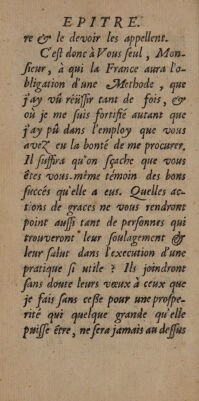 EPITRE.
re & le devoir les appellent.
C'eſt donc à Vous ſeul, Mon-
ſieur, à qui la France aura l'o-
bligation d'une Methode, que
j'ay vû réüſſir tant de fois, &
où je me ſuis fortifié autant que
j'ay pû dans l'employ que vous
avez eu la bonté de me procurer.
Il ſuffira qu'on ſçache que vous
êtes vous-même témoin des bons
ſuccés qu'elle a eus. Quelles ac-
tions de graces ne vous rendront
point auſſi tant de perſonnes qui
trouveront leur ſoulagement &
leur ſalut dans l'execution d'une
pratique ſi utile ? Ils joindront
ſans doute leurs vœux à ceux que
je fais ſans ceſſe pour une proſpe-
rité qui quelque grande qu'elle
puiſſe être, ne ſera jamais au deſſus